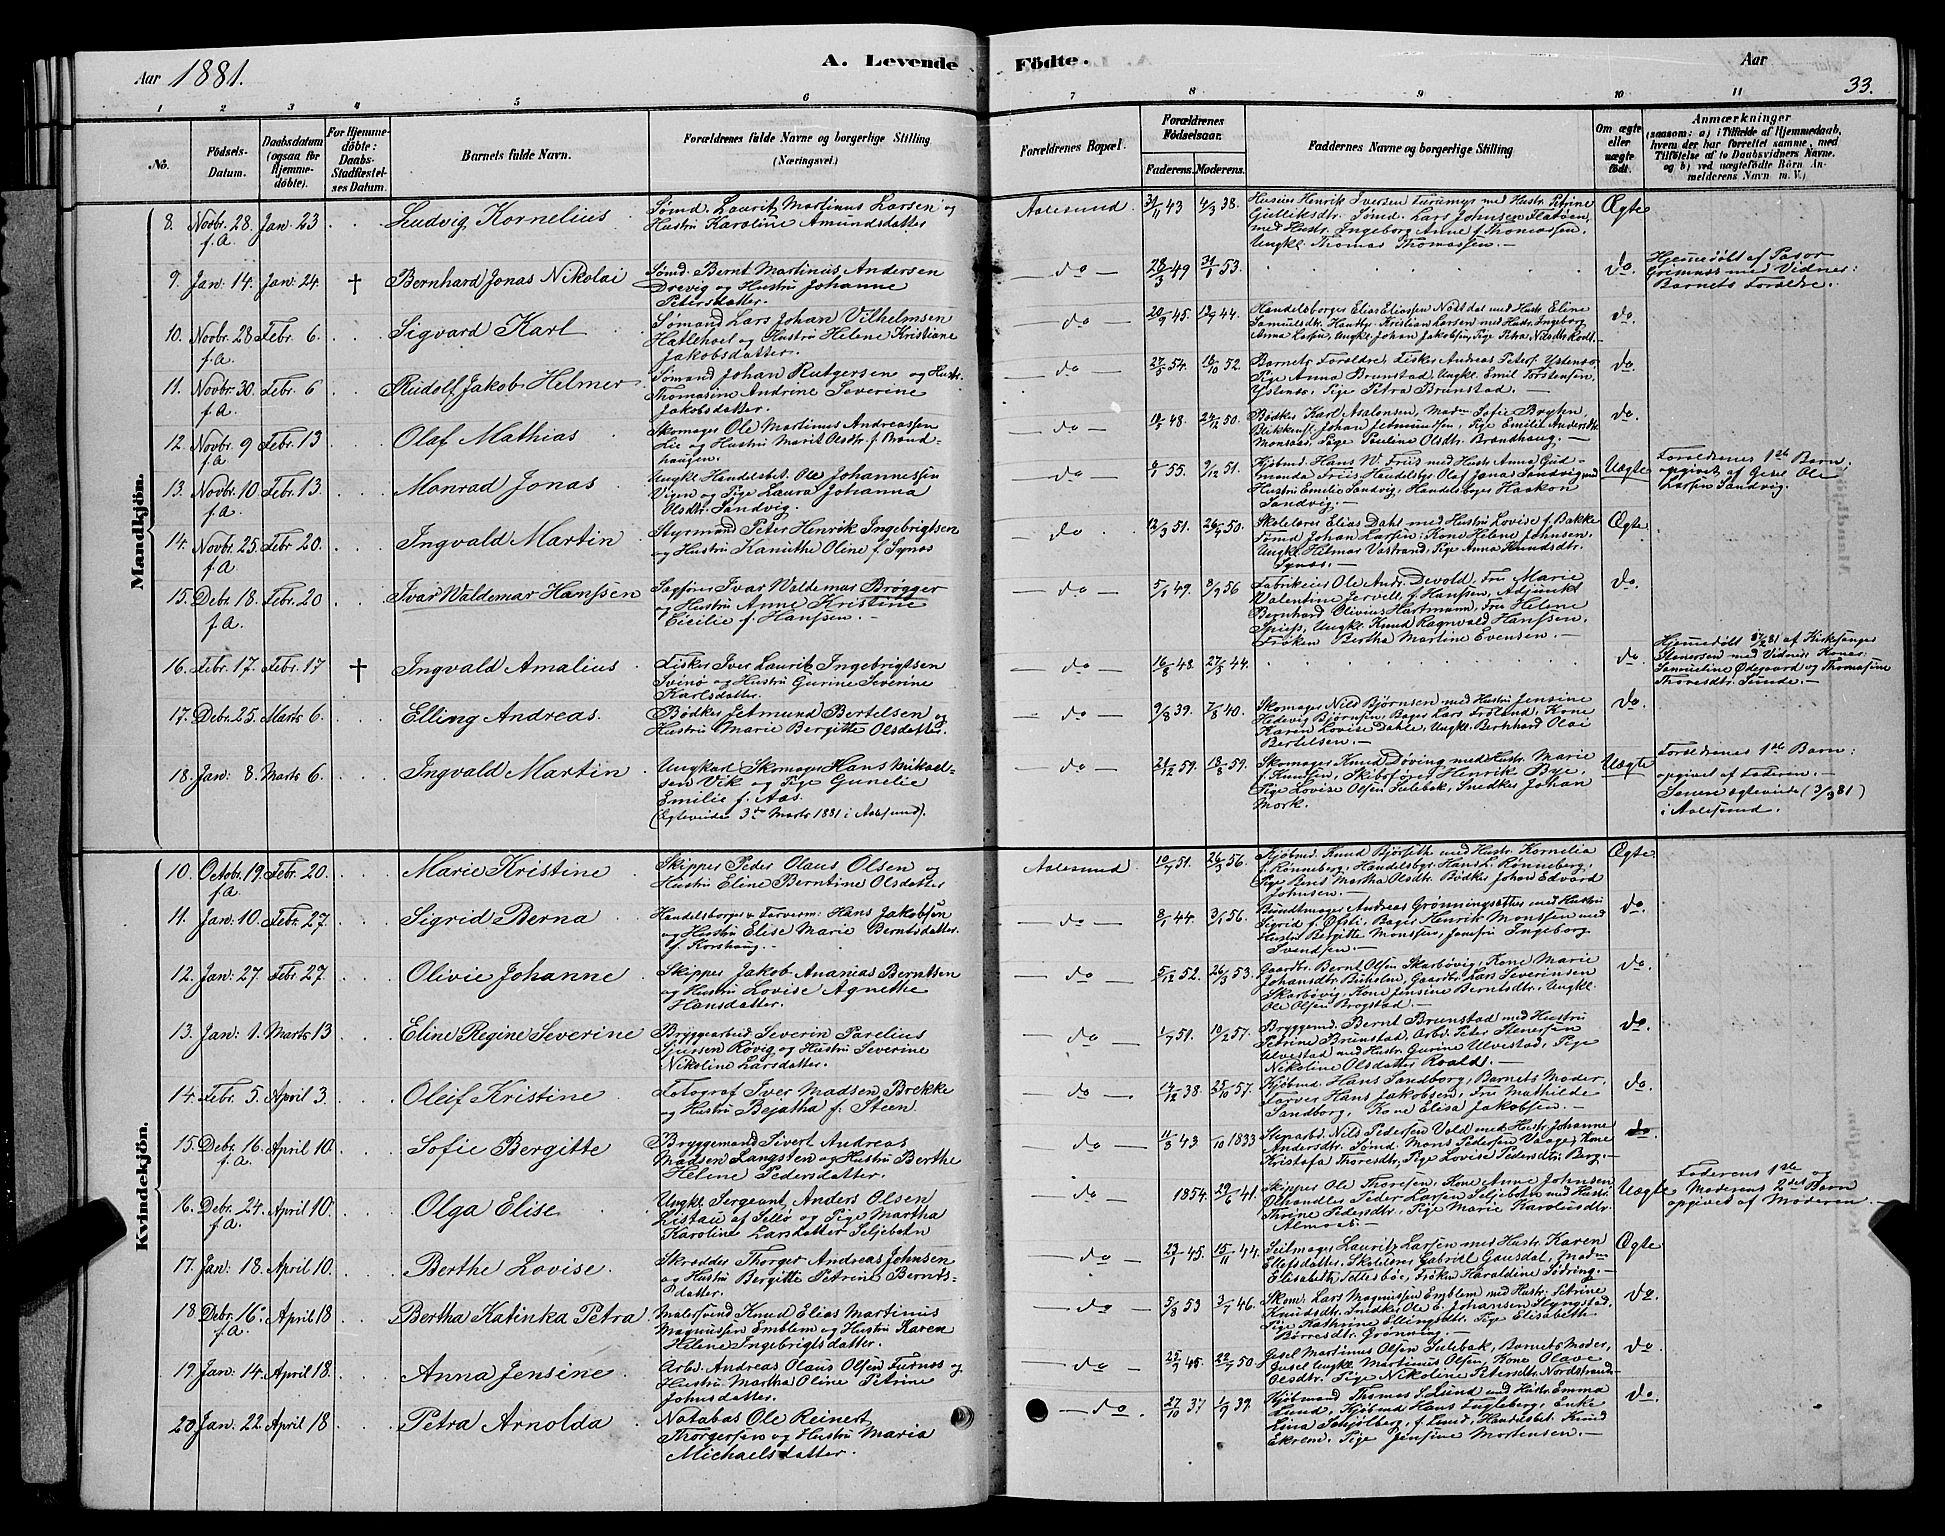 Aar 1881.
A. Levende
Födte.
Aar
33.
1 2 3 4 5 6 7 8 9 10 11
No.
Födsels-
Datum.
Daabsdatum
(ogsaa for
Hjemme-
döbte).
For Hjemme-
döbte:
Daabs-
Stadfæstel-
ses Datum.
Barnets fulde Navn.
Forældrenes fulde Navne og borgerlige Stilling
(Næringsvei.)
Forældrenes Bopæl.
Forældrenes
Födselsaar.
Faderens. Moderens.
Faddernes Navne og borgerlige Stilling
Om ægte
eller
uægte
födt.
Anmærkninger
(saasom: a) i Tilfælde af Hjemmedaab,
hvem der har forrettet samme, med
Tilföielse af to Daabsvidners Navne,
og b) ved uægtefödte Börn An-
melderens Navn m. V.)
Mandkjön.
8. Novbr. 28. Jan. 23 Ludvig Kornelius
f.A.
Sømd. Laurits Martinus Larsen og
Hustru Karoline Amundsdatter
Aalesund 31/11 43 4/3 38.
Gulliksdtr. Sømd. Lars Johnsen Fladøen,
med Hustr. Ingeborg Anne f. Thomassen,
Ungkl. Thomas Thomassen. —
Ægte
9. Jan. 14. Jan. 24. † Bernhard Jonas Nikolai
Sømd. Bernt Martinus Andersen
Drevig og Hustru Johanne
Petersdatter.
do 28/3 49 31/1 53.
do.
Hjemmedöbt af Pastor
Grimnæs med Vidner:
Barnets Forældre.
10. Novbr. 28 Febr. 6. Sigvard Karl
f.A.
Sømand Lars Johan Vilhelmsen
Hatlehoel og Hustru Helene Kristiane
Jakobsdatter.
do 20/9 45. 44.
Handelsborger Elias Eliassen Notdal med Hustr. Eline
Samuelsdtr. Handby. Kristian Larsen med Hustr. Ingeborg
Anna Larsen, Ungkl. Johan Jakobsen, Pige Petra Nilsdtr.
do.
11. Novbr. 30. Febr. 6 Rudolf Jakob Helmer
f.A.
Sømand Johan Rutgersen og Hustr.
Thomasine Andrine Severine
Jakobsdatter.
do 27/5 54. 16/10 52.
Barnets Forældre, Fisker Andreas Peters. Ystenes,
Pige Anna Brunstad, Ungkl. Emil Torstensen,
Ystenes, Pige Petra Brunstad.
do.
12. Novbr. 9 Febr. 13 Olaf Mathias
f.A.
Skomager Ole Martinus Andreassen
Lie og Hustru Marit Olsdtr. f. Brand-
haugen.
do 48. 24/12 50.
Bødker Karl Asalonsen, Mad. Sofie Bryhn,
Blikkensl. Johan Jetmundsen, Pige Emilie Andersdtr.
Monsaas, Pige Pauline Olsdtr. Brandhaug. —
do.
13. Novbr. 10 Febr. 13. Monrad Jonas
f.A.
Ungkl. Handelsbet. Ole Johannessen
Vigen og Pige Laura Johanna
Olsdtr. Sandvig.
do 6/1 55. 9/12 51.
Kjøbmd. Hans W. Friis med Hustr. Anna Gud-
munda Friis, Handelsby. Olaf Jonas Sandvig med
Hustru Emilie Sandvig, Handelsborger Haakon
Sandvig. —
Uægte
Forældrenes 1ste Barn;
opgivet af Gesel Ole
Larsen Sandvig.
14. Novbr. 25. Febr. 20. Ingvald Martin
f.A.
Styrmand Peter Henrik Ingebrigtsen
og Hustru Kanuthe Oline f. Synes
do 12/3 51. 26/4 50.
Skolelærer Elias Dahl med Hustru Lovise f. Bakke
Sømd. Johan Larsen, Kone Helene Johnsen,
Ungkl. Helmer Vestrand, Pige Anna Knudsdtr.
Synes. —
Ægte
15. Debr. 18. Febr. 20 Ivar Waldemar Hanssen
f.A.
Sagfører Ivar Waldemar Brøgger
og Hustru Anne Kristine
Cecilie f. Hanssen. —
do 5/1 49. 8/9 56
Fabrikeier Ole Andr. Devold. Fru Marie
Valentine Jervell, f. Hanssen, Adjunkt
Bernhard Olivius Hartmann, Fru Helene
Spiess, Ungkl. Knud Ragnvald Hanssen,
Frøken Bertha Martine Evensen. —
do.
16. Febr. 17. Febr. 17 † Ingvald Amalius
Fisker Iver Laurits Ingebrigtsen
Svinø og Hustru Gurine Severine
Karlsdatter.
do 16/8 48. 27/5 44.
do.
Hjemmedöbt 17/2 81 af Kirksanger
Stenersen med Vidner: Konerne
Samueline Ødegaard og Thomasine
Thoresdtr. Sunde. —
17. Debr. 25. Marts 6. Elling Andreas.
Bødker Jetmund Bertelsen og
Hustru Marie Bergitte Olsdatter.
do 9/8 39. 7/8 40.
Skomager Nils Bjørnsen med Hustru Jensine
Hedevig Bjørnsen, Bager Lars Frøland, Kone
Karen Lovise Dahle, Ungkl. Bernhard Olai
Bertelsen. —
do.
18. Jan. 8. Marts 6. Ingvald Martin
Ungkarl Skomager Hans Mikael-
sen Vik og Pige Gunelie
Emilie f. Aas.
(Egteviede 3die Marts 1881 i Aalesund).
do 21/12 59. 18/8 59.
Skomager Knud Døving med Hustr. Marie
f. Knudsen, Skibsfører Henrik Bye,
Pige Lovise Olsen Sulebak, Snedker Johan
Mork.
Uægte
Forældrenes 1ste Barn;
opgivet af Faderen. —
Senere ægteviede (3/3 81)
i Aalesund.
Kvindekjön.
10. Octobr. 19. Febr. 20. Marie Kristine
f.A.
Skipper Peder Olaus Olsen og
Hustru Eline Berntine Olsdatter
Aalesund. 10/7 51. 26/3 56.
Kjøbmd. Knud Bjørseth med Hustr. Kornelia
f. Rønneberg, Handelsbgr. Hans L. Rønneberg,
Pige Beret Martha Olsdtr. Bødker Johan Edvard
Johnsen. —
Ægte
11. Jan. 10. Febr. 27. Sigrid Berna
Handelsborger & Farverm. Hans Jakobsen
og Hustru Elise Marie Berntsdatter
f. Korshaug. —
do 8/1 44. 3/1 56.
Bundtmager Andreas Grønningsæter med Hustru
Sigrid f. Øfsti, Bager Henrik Monssen med
Hustru Bergitte Monssen, Jomfru Ingeborg
Svendsen. —
do.
12. Jan. 27. Febr. 27. Olivie Johanne
Skipper Jakob Ananias Berntsen
og Hustru Lovise Agnethe
Hansdatter.
do 5/12 52. 26/3 53.
Gaardbr. Bernt Olsen Skarbøvig, Kone Marie
Johansdtr. Buholm, Gaardbr. Lars Severinsen
Skarbøvig, Kone Jensine Berntsdtr., Ungkl.
Ole Olsen Brogstad. —
do.
13. Jan. 1. Marts 13 Eline Regine Severine
Bryggearbeid. Severin Parelius
Sjursen Røvig og Hustru Severine
Nikoline Larsdatter.
do 1/7 51. 10/2 57.
Bryggemd. Bernt Brunstad med Hustru
Petrine Brunstad, Arbd. Peter Stenersen
Ulvestad med Hustr. Gurine Ulvestad, Pige
Nikoline Olsdatter Roald. —
do.
14. Febr. 5. April 3. Oleif Kristine
Fotograf Iver Madsen Brekke
og Hustru Bejatha f. Steen
do 14/12 38. 25/10 57.
Kjøbmd. Hans Sandborg, Barnets Moder,
Farver Hans Jakobsen, Fru Mathilde
Sandborg, Kone Elisa Jakobsen. —
do.
15. Debr. 16. April 10. Sofie Bergitte
f.A.
Bryggemand Sivert Andreas
Madsen Langsten og Hustru Berthe
Helene Pedersdatter.
do 11/8 43 /10 1833
Stenarbd. Nils Pedersen Vold med Hustr. Johanne
Andersdtr. Sømd. Mons Pedersen Vaage, Kone
Kristofa Thoresdtr., Pige Lovise Pedersdtr. Berg. —
do.
16. Debr. 24. April 10. Olga Elise
f.A.
Ungkl. Sergeant Anders Olsen
Listau af Sellø og Pige Martha
Karoline Larsdatter Seljebotn
do 1854. 29/6 41.
Skipper Ole Thoresen, Kone Anne Johnsen
Ølhandler Peder Larsen Seljebotn med Hustr.
Thrine Pedersdtr., Pige Marie Karolusdtr.
Almaas. —
Uægte
Faderens 1ste og
Moderens 2det Barn
opgivet af Moderen. —
17. Jan. 18. April 10. Berthe Lovise.
Skrædder Thorger Andreas Johnsen
og Hustru Bergitte Petrine Bernts-
datter.
do 23/1 45. 15/11 44.
Seilmager Laurits Larsen med Hustr. Karen
Ellefsdatter, Skolelærer Gabriel Gausdal, Mad.
Elisabeth Tellesbøe, Frøken Haraldine Sødring. —
Ægte
18. Debr. 16. April 18 Bertha Katinka Petra
f.A.
Malersvend Knud Elias Martinus
Magnussen Emblem og Hustru Karen
Helene Ingebrigtsdatter.
do 5/8 53 3/7 46.
Skom. Lars Magnussen Emblem med Hustr. Petrine
Knudsdtr. Snedker Ole E. Johansen Slyngstad,
Pige Kathrine Ellingsdtr. Pige Elisabeth
Børresdtr. Grønning. —
do.
19. Jan. 14. April 18. Anna Jensine
Arbd. Andreas Olaus Olsen Furnes og
Hustru Martha Oline Petrine
Johnsdatter.
do 25/7 45. 22/7 50.
Gesel Martinus Olsen Sulebak, Barnets Moder,
Gesel Ungkl. Martinus Olsen, Kone Olave
Olsdtr. Pige Nikoline Petersdtr. Nordstrand
do.
20 Jan. 22. April 18 Petra Arnolda
Matabas Ole Reinert
Thorgersen og Hustru Maria
Michaelsdatter.
do. 27/10 37 1/9 39.
Kjøbmand Thomas S. Lund med Hustr. Emma
Lund, Kjøbmd. Hans Engleberg, Enke
Lina Schjølberg, f. Lund, Handelsbet. Knud
Ekrem. Pige Jensine Mortensen. —
do.